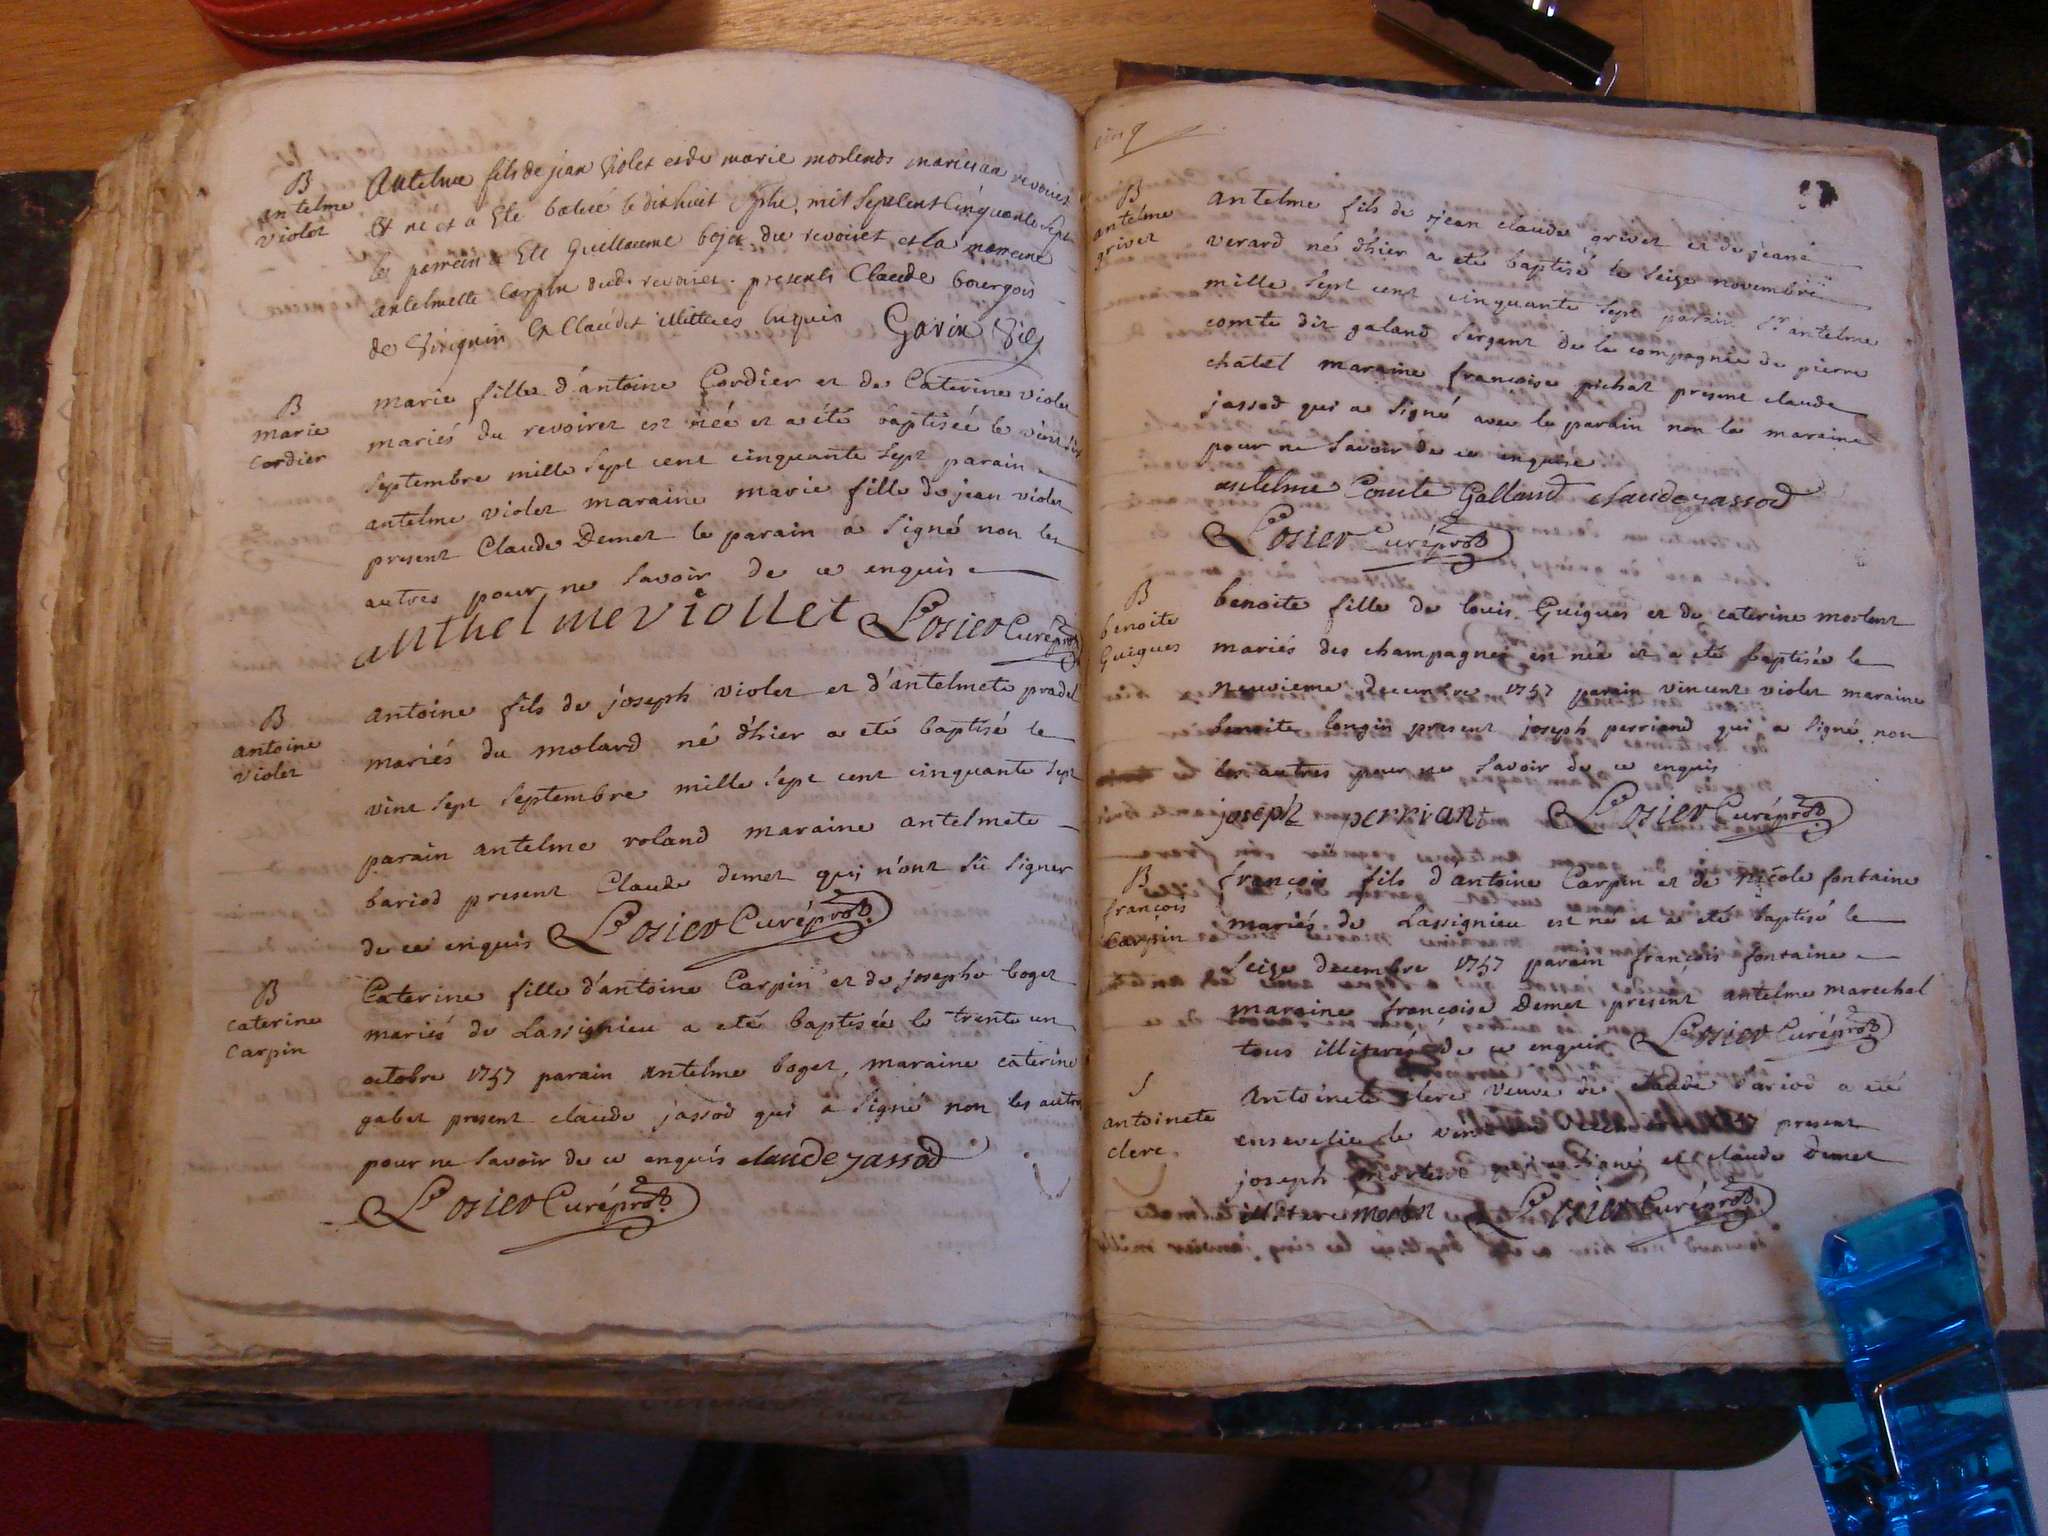 B
antelme
violet
Antelme fils de jean Violet et de marie morlend mariés au revoiret
Et ne et a Ete batisé le dixhuit 7bre mil sept Cent Cinquante sept
le parrein a Ete Guillaume bojet du revoiret et la marreine
antelmette Carpin dud. revoiret. presents Claude bourgois
de Virignin Et Claudet illitteres enquis Gavin Vic
B
marie
Cordier
marie fille d'antoine Cordier et de Caterine violet
mariés du revoiret est née et a été baptisée le vint
septembre mille sept cent cinquante sept parain
antelme violet maraine marie fille de jean violet
present Claude Demet le parain a signé non les
autres pour ne savoir de ce enquis
anthelme viollet Losier Curé
B
antoine
violet
antoine fils de joseph violet et d'antelmete pradel
mariés du molard né d'hier a eté baptisé le
vint sept septembre mille sept cent cinquante sept
parain antelme roland maraine antelmete
bariod present Claude demet qui n'ont sû signer
de ce enquis Losier Curé
B
caterine
Carpin
Caterine fille d'antoine Carpin et de josephe boget
mariés de Lassignieu a eté baptisée le trente un
octobre 1757 parain antelme boget, maraine caterine
gabet present claude jassod qui a signé non les autres
pour ne savoir de ce enquis claude jassod
Losier Curé
cinq
B
antelme
grivet
antelme fils de jean claude grivet et de jeane
verard né d'hier a eté baptisé le seize novembre
mille sept cent cinquante sept parain Sr antelme
comte dit galand sergent de la compagnie de pierre
chatel maraine françoise pichat present claude
jassod qui a signé avec le parain non la maraine
pour ne savoir de ce enquise
antelme Comte Galland claude jassod
Losier Curé
B
benoite
Guigues
benoite fille de louis Guigues et de caterine morlent
mariés des champagnes est née et a eté baptisée le
neuvieme decembre 1757 parain vincent violet maraine
benoite longin present joseph perriand qui a signé non
les autres pour ne savoir de ce enquis
joseph perriant Losier Curé
B
françois
Carpin
françois fils d'antoine Carpin et de nicole fontaine
mariés de Lassignieu est né et a eté baptisé le
seize decembre 1757 parain françois fontaine
maraine françoise Demet, present antelme marechal
tous illiterés de ce enquis Losier Curé
S
antoinete
clerc
Antoinete clerc veuve de claude bariod a eté
ensevelie le vint present
joseph signé et claude Demet
illiteré Losier Curé